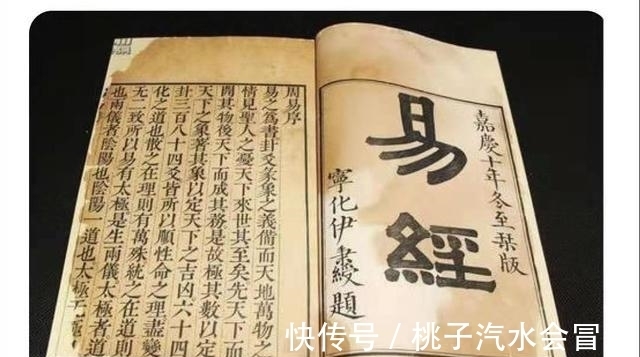 嘉慶十年冬至栞版
易經
寧化伊秉綬題
周易序
易之爲書卦爻彖象之義備而天地萬物之
情見聖人之憂天下來世其至矣先天下而
開其物後天下而成其務是故極其數以定
天下之象著其象以定天下之吉凶六十四
卦三百八十四爻皆所以順性命之理盡變
化之道也散之在理則有萬殊統之在道則
无二致所以易有太極是生兩儀太極者道
也兩儀者陰陽也陰陽一道也太極无
快传号 / 桃子汽水会冒